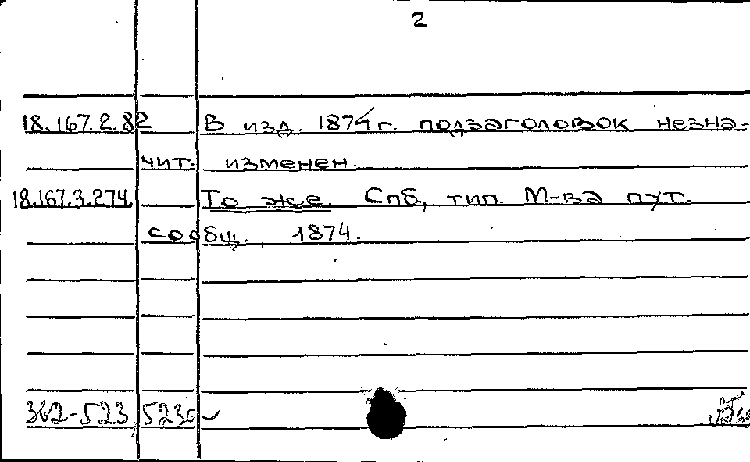 2
18.167.2.82 В изд. 1874г. подзаголовок незна-
чит. изменен.
18.167.3.274 То же. Спб, тип. М-ва пут.
сообщ., 1874.
362-523 523